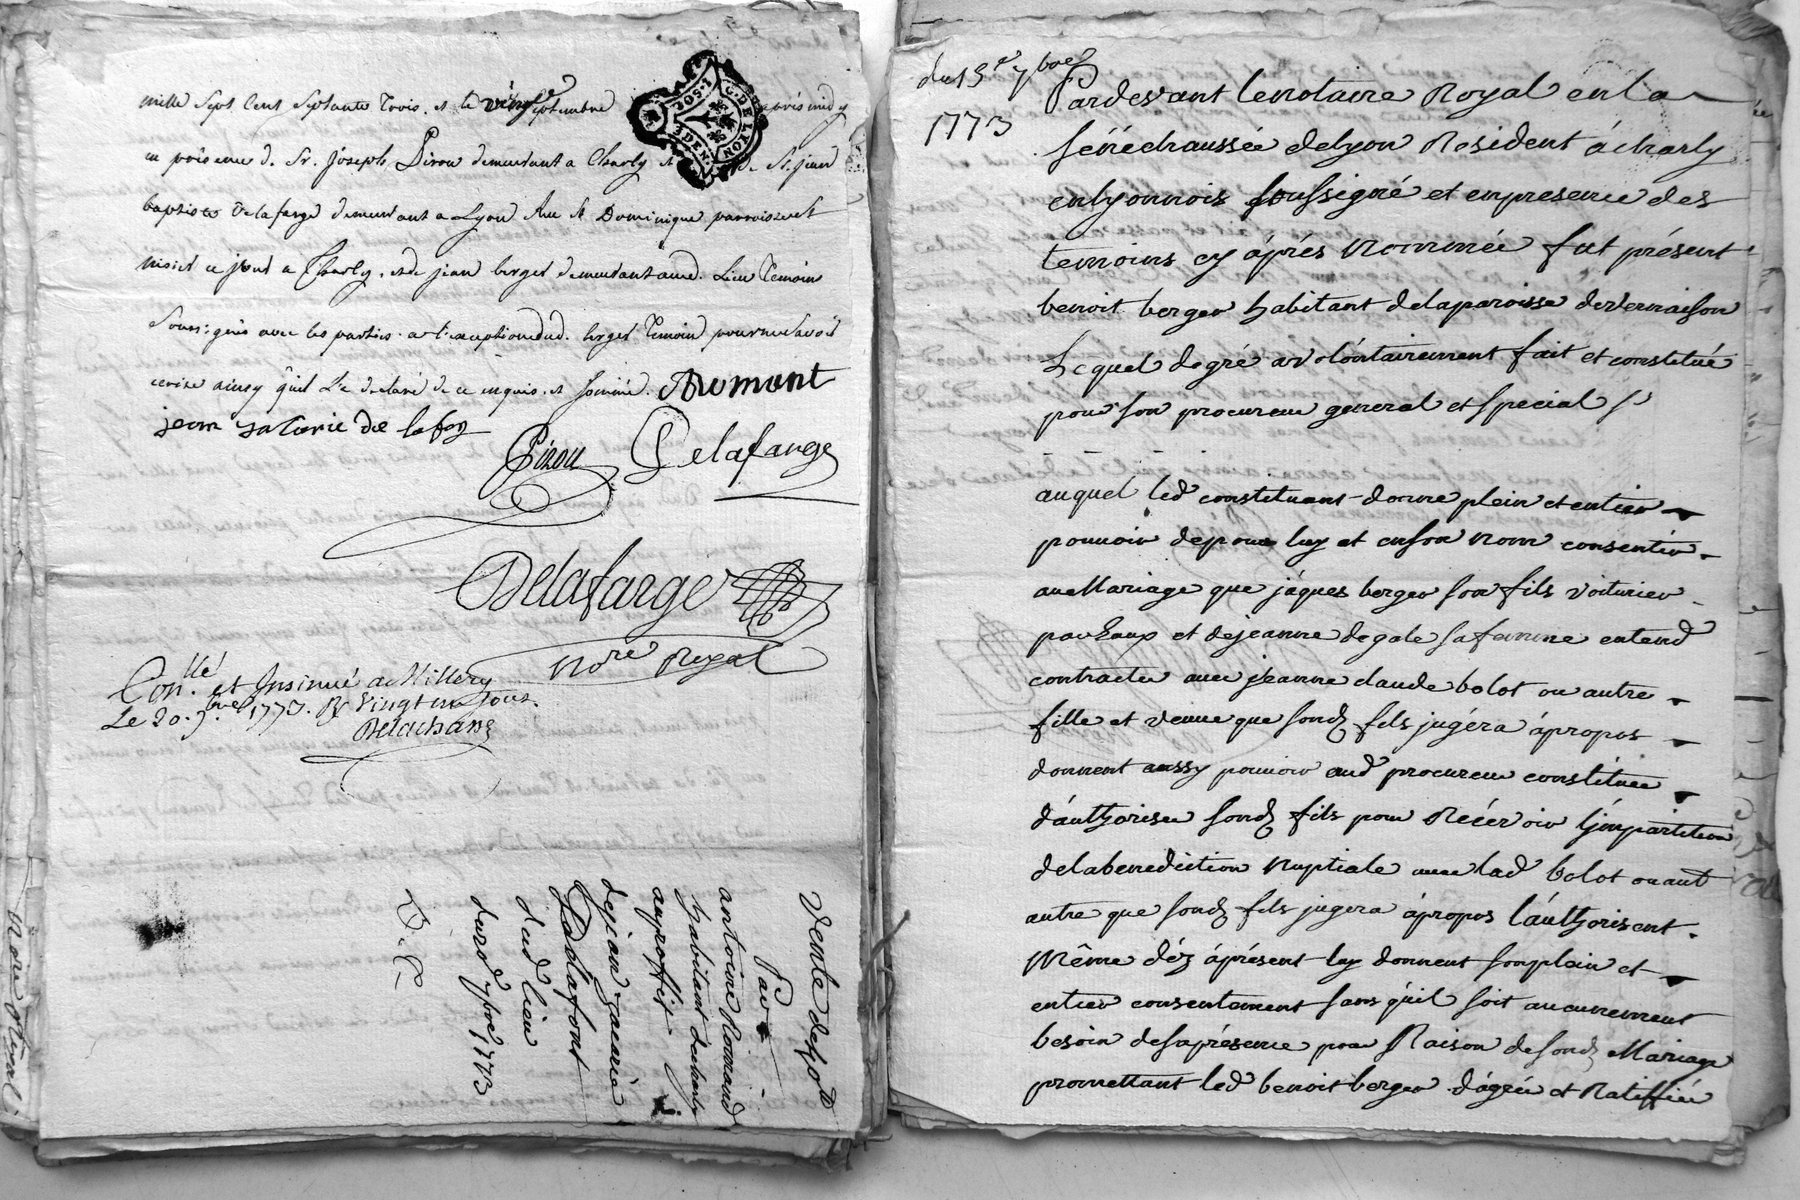 mille Sept Cent Septante Trois. et le vingt Septembre après midy
en présence de Sr. Joseph Pirou demeurant a Charly et de Sr. jean
baptiste Delafarge demeurant a Lyon Rue St Dominique parroisse St
nisiet ce jour a Charly, et de jean berger demeurant aud. Lieu Temoin
Sous-signés avec les parties. a l'exception dud. berger Temoin pour ne savoir
ecrire ainsy qu'il L'a declaré de ce enquis. et sommé. Romant
jean zacarie de lafon
Pirou Delafarge
Delafarge
Nore Royal
Con.llé et Insinué a Millery
Le 20. 7.bre 1773. R Vingt un sous.
Delachans
Vente de
Par
antoine Romand
habitant de charly
au proffit
de jean zacarie
Dadlafont
dud lieu
du 20 7bre 1773
JOS. 4 DEN.
G. DE LYON
du 19e 7bre
1773
Pardevant le notaire Royal en la
sénéchaussée de lyon Resident à charly
en lyonnois soussigné et en presence des
temoins cy après Nommée fut présent
benoit berger habitant de la paroisse de vernaison
Lequel de gré a volontairement fait et constitué
pour son procureur general et special Sr
auquel led constituant donne plein et entier
pouvoir de pour luy et en son nom consentir
au Mariage que jàques berger son fils voiturier
par Eaux et de jeanne degale sa femme entend
contracter avec jeanne claude bolot ou autre
fille et veuve que sond fils jugéra àpropos
donnent aussy pouvoir aud procureur constituée
d'authoriser sond fils pour Récévoir l'jmpartition
de la benediction Nuptiale avec lad bolot ou aut
autre que sond fils jugera àpropos l'authorisent
Même déz àprésent luy donnent son plein et
entier consentement sans qu'il soit aucunement
besoin de sa présence pour Raison de sond Mariage
promettant led benoit berger d'agréer et Ratiffier
Nore Royal.